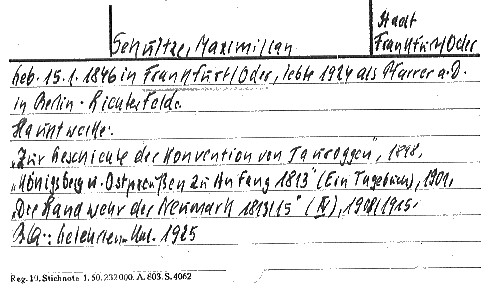 Stadt
Schultze, Maximilian Frankfurt/Oder
geb. 15.1.1846 in Frankfurt/Oder, lebte 1924 als Pfarrer a.D.
in Berlin-Lichterfelde.
Hauptwerke:
„Zur Geschichte der Konvention von Tauroggen", 1898,
„Königsberg u. Ostpreußen zu Anfang 1813" (Ein Tagebuch), 1901,
„Die Landwehr der Neumark 1813/15" (IV), 1908/1915.
Gelehrten-Kal. 1925
Reg. 19. Stichnote 1. 50. 232000. A. 603. S. 4062